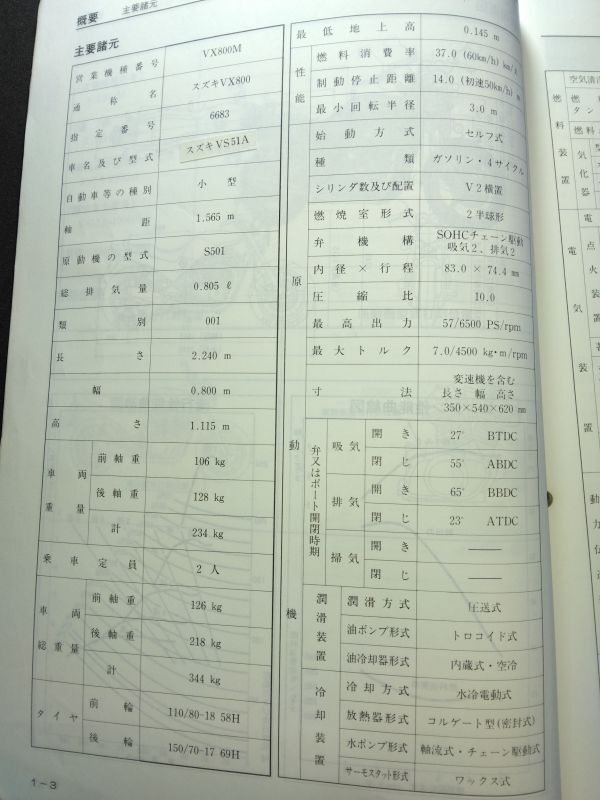 概要 主要諸元
主要諸元
営業機種番号 VX800M
通称名 スズキVX800
指定番号 6683
車名及び型式 スズキVS51A
自動車等の種別 小型
軸距 1.565 m
原動機の型式 S501
総排気量 0.805 ℓ
類別 001
長さ 2.240 m
幅 0.800 m
高さ 1.115 m
車両重量 前軸重 106 kg
後軸重 128 kg
計 234 kg
乗車定員 2人
車両総重量 前軸重 126 kg
後軸重 218 kg
計 344 kg
タイヤ 前輪 110/80-18 58H
後輪 150/70-17 69H
1-3
最低地上高 0.145 m
性能 燃料消費率 37.0 (60km/h) km/ℓ
制動停止距離 14.0 (初速50km/h) m
最小回転半径 3.0 m
原動機 始動方式 セルフ式
種類 ガソリン・4サイクル
シリンダ数及び配置 V2横置
燃焼室形式 2半球形
弁機構 SOHCチェーン駆動
吸気2、排気2
内径×行程 83.0 × 74.4 mm
圧縮比 10.0
最高出力 57/6500 PS/rpm
最大トルク 7.0/4500 kg·m/rpm
寸法 変速機を含む
長さ 幅 高さ
350×540×620 mm
弁又はポート開閉時期 吸気 開き 27° BTDC
閉じ 55° ABDC
排気 開き 65° BBDC
閉じ 23° ATDC
掃気 開き ——
閉じ ——
潤滑装置 潤滑方式 圧送式
油ポンプ形式 トロコイド式
油冷却器形式 内蔵式・空冷
冷却装置 冷却方式 水冷電動式
放熱器形式 コルゲート型(密封式)
水ポンプ形式 軸流式・チェーン駆動式
サーモスタット形式 ワックス式
空気清
燃料装置
燃
タン
燃料
気化器
電気装置
点火装
置
動力